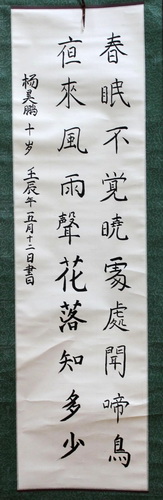 春眠不覚曉處處聞啼鳥
夜來風雨聲花落知多少
杨昊鹏十岁 壬辰年五月十二日書